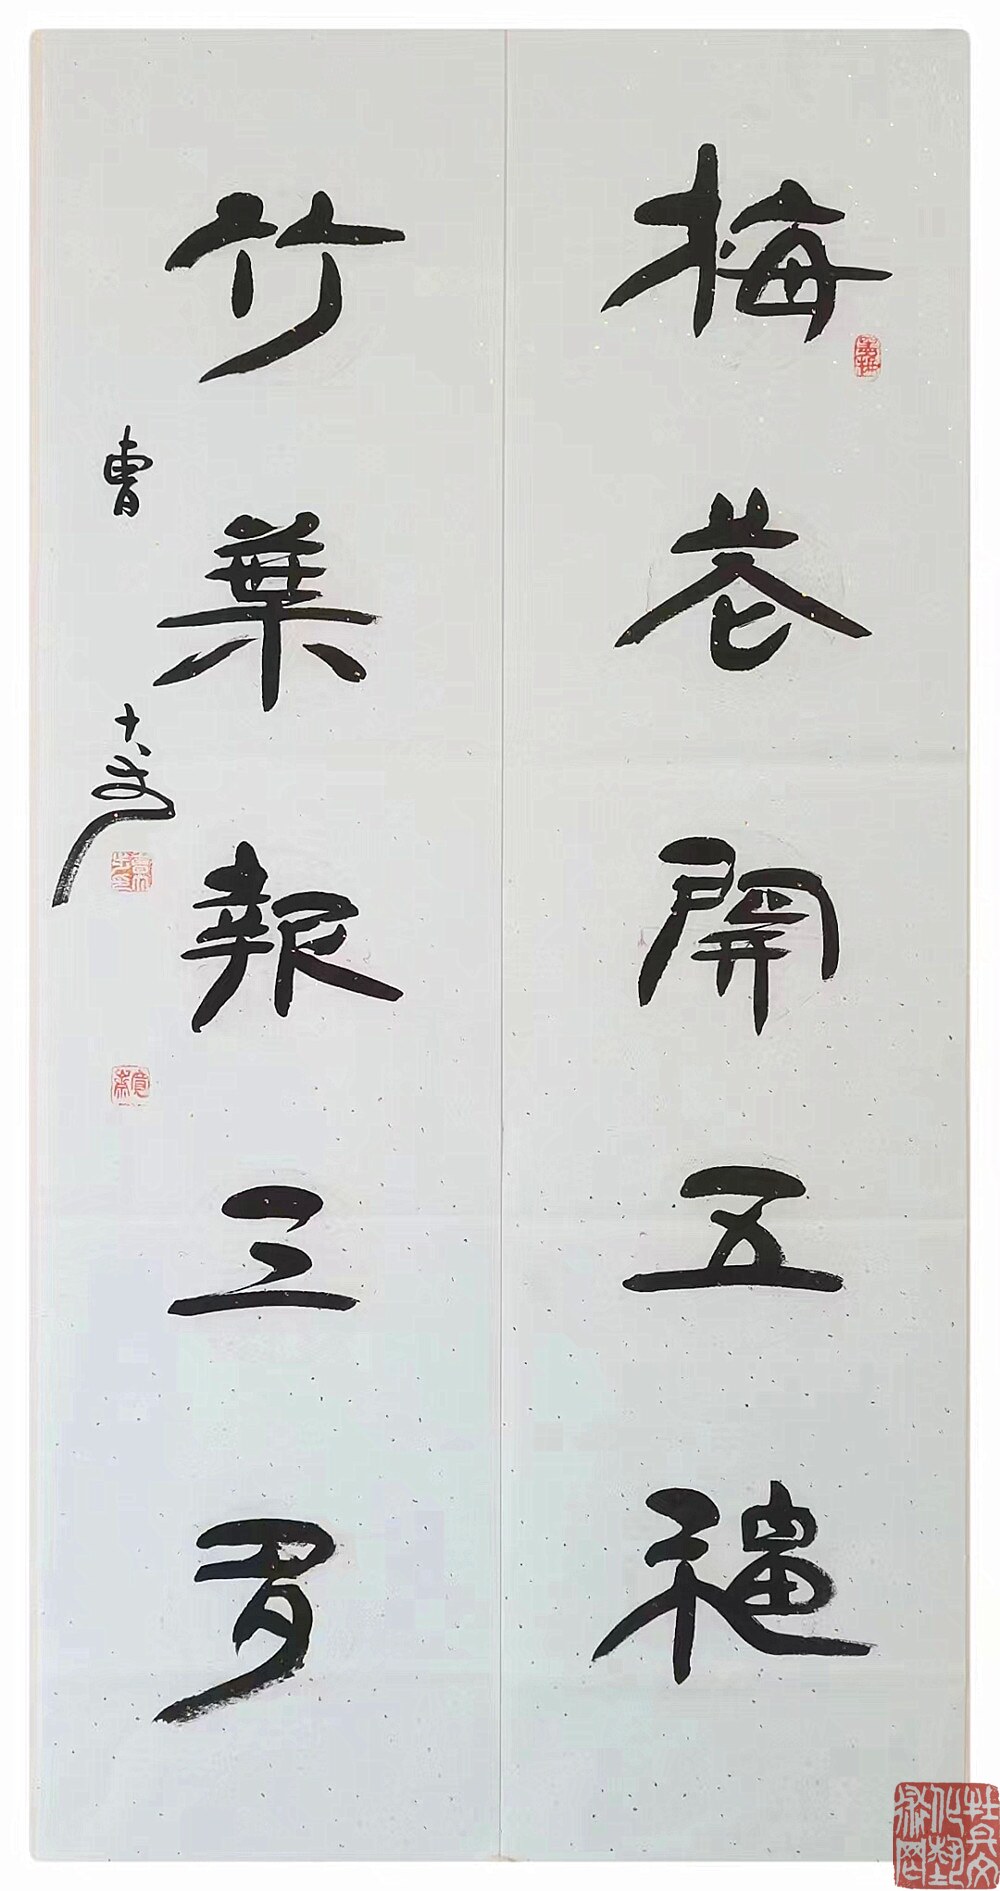 梅花開五福
竹葉報三多
曹